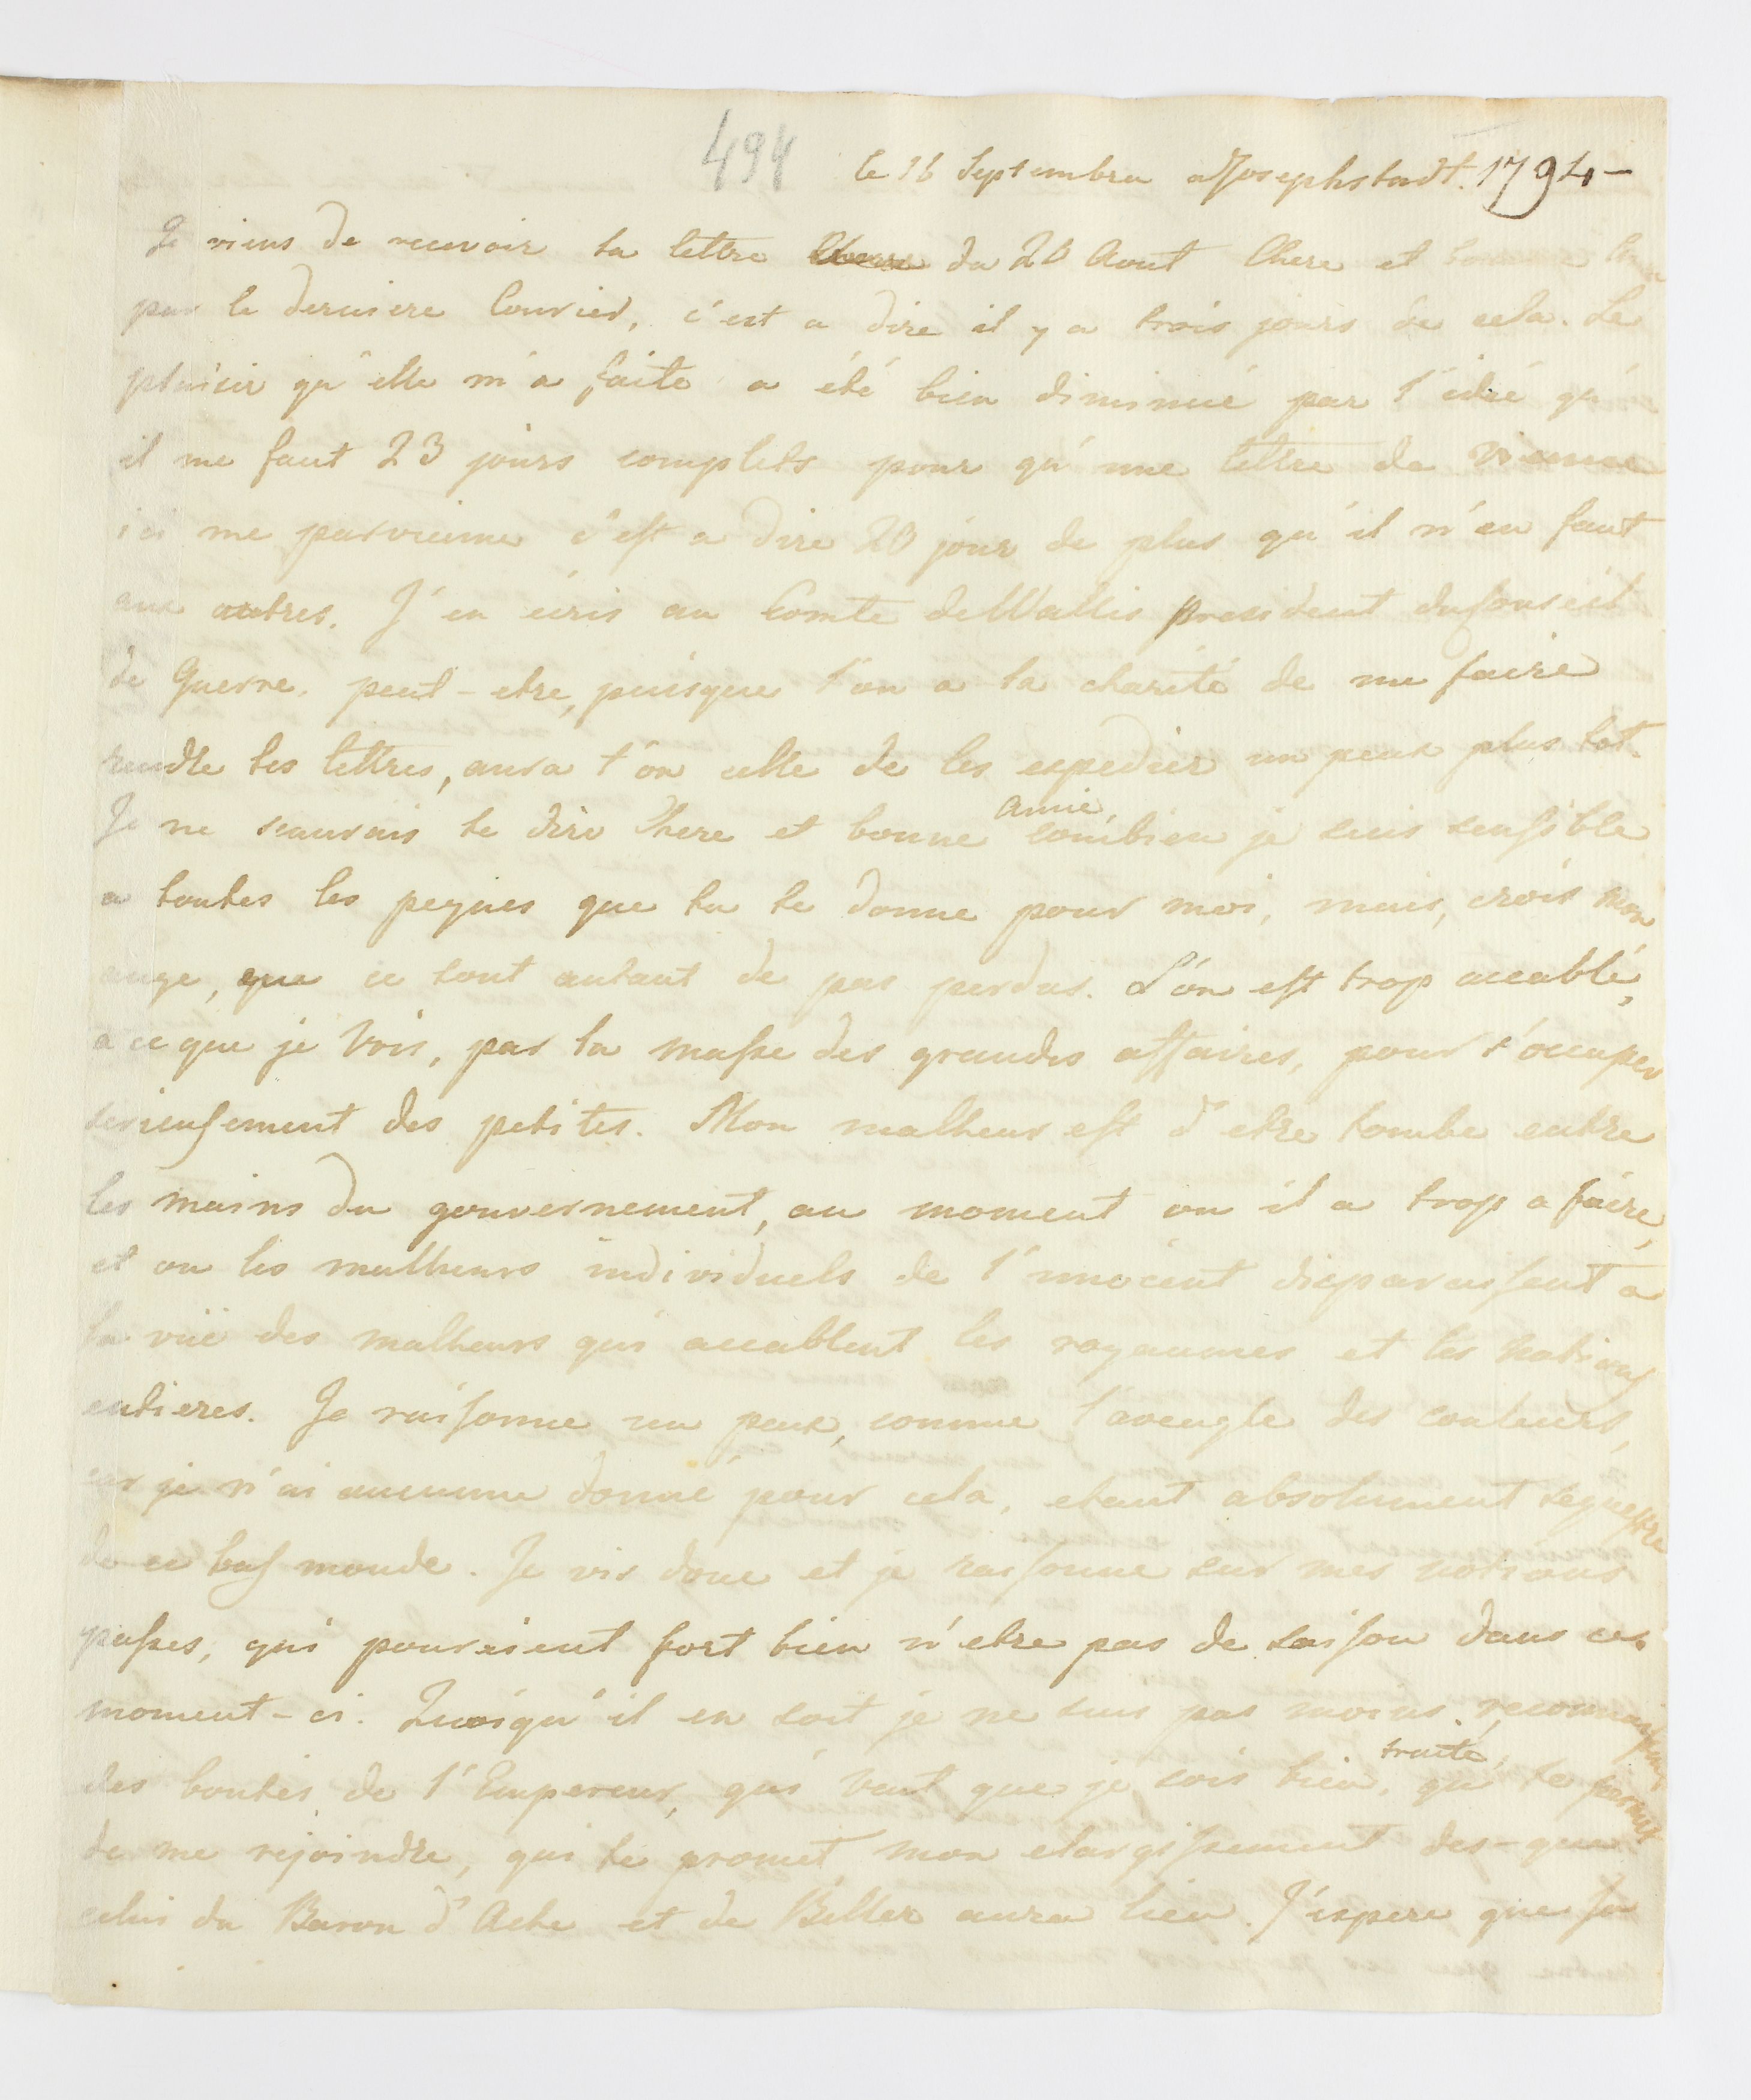 494
le 16 Septembre a Josephstadt. 1794 –
Je viens de recevoir ta lettre du 20 Aout Chere et bonne Amie
par le derniere Courier, c'est a dire il y a trois jours de cela. Le
plaisir qu'elle m'a faite a été bien diminué par l'idée qu'
il me faut 23 jours complets pour qu'une lettre de Vienne
ici me parvienne c'est a dire 20 jour de plus qu'il n'en faut
aux autres. J'en écris au Comte de Wallis president du Conseil
de Guerre. peut-etre, puisque l'on a la charité de me faire
rendre tes lettres, aura t'on celle de les expedier un peux plus tot.
Je ne scaurais te dire Chere et bonne amie, combien je suis sensible
a toutes les peynes que tu te donne pour moi, mais, crois mon
ange, que ce sont autant de pas perdus. L'on est trop accablé,
a ce que je vois, par la masse des grandes affaires, pour s'occuper
serieusement des petites. Mon malheur est d'etre tombe entre
les mains du gouvernement, au moment ou il a trop a faire,
et ou les malheurs individuels de l'innocent disparaissent a
la vüe des malheurs qui accablent les royaumes et les nations
entieres. Je raisonne un peux, comme l'aveugle des couleurs,
car je n'ai aucunne donné pour cela, etant absolument sequestre
de ce bas monde. Je vis donc et je raisonne sur mes notions
passes, qui pouroient fort bien n'etre pas de saison dans ce
moment-ci. Quoiqu'il en soit je ne suis pas moins reconnaissant
des bontés de l'Empereur, qui veut que je sois bien traité, qui te permet
de me rejoindre, qui te promet mon elargissement des-que
celui du Baron d'Ache et de Beller aura lieu. J'espere que tu